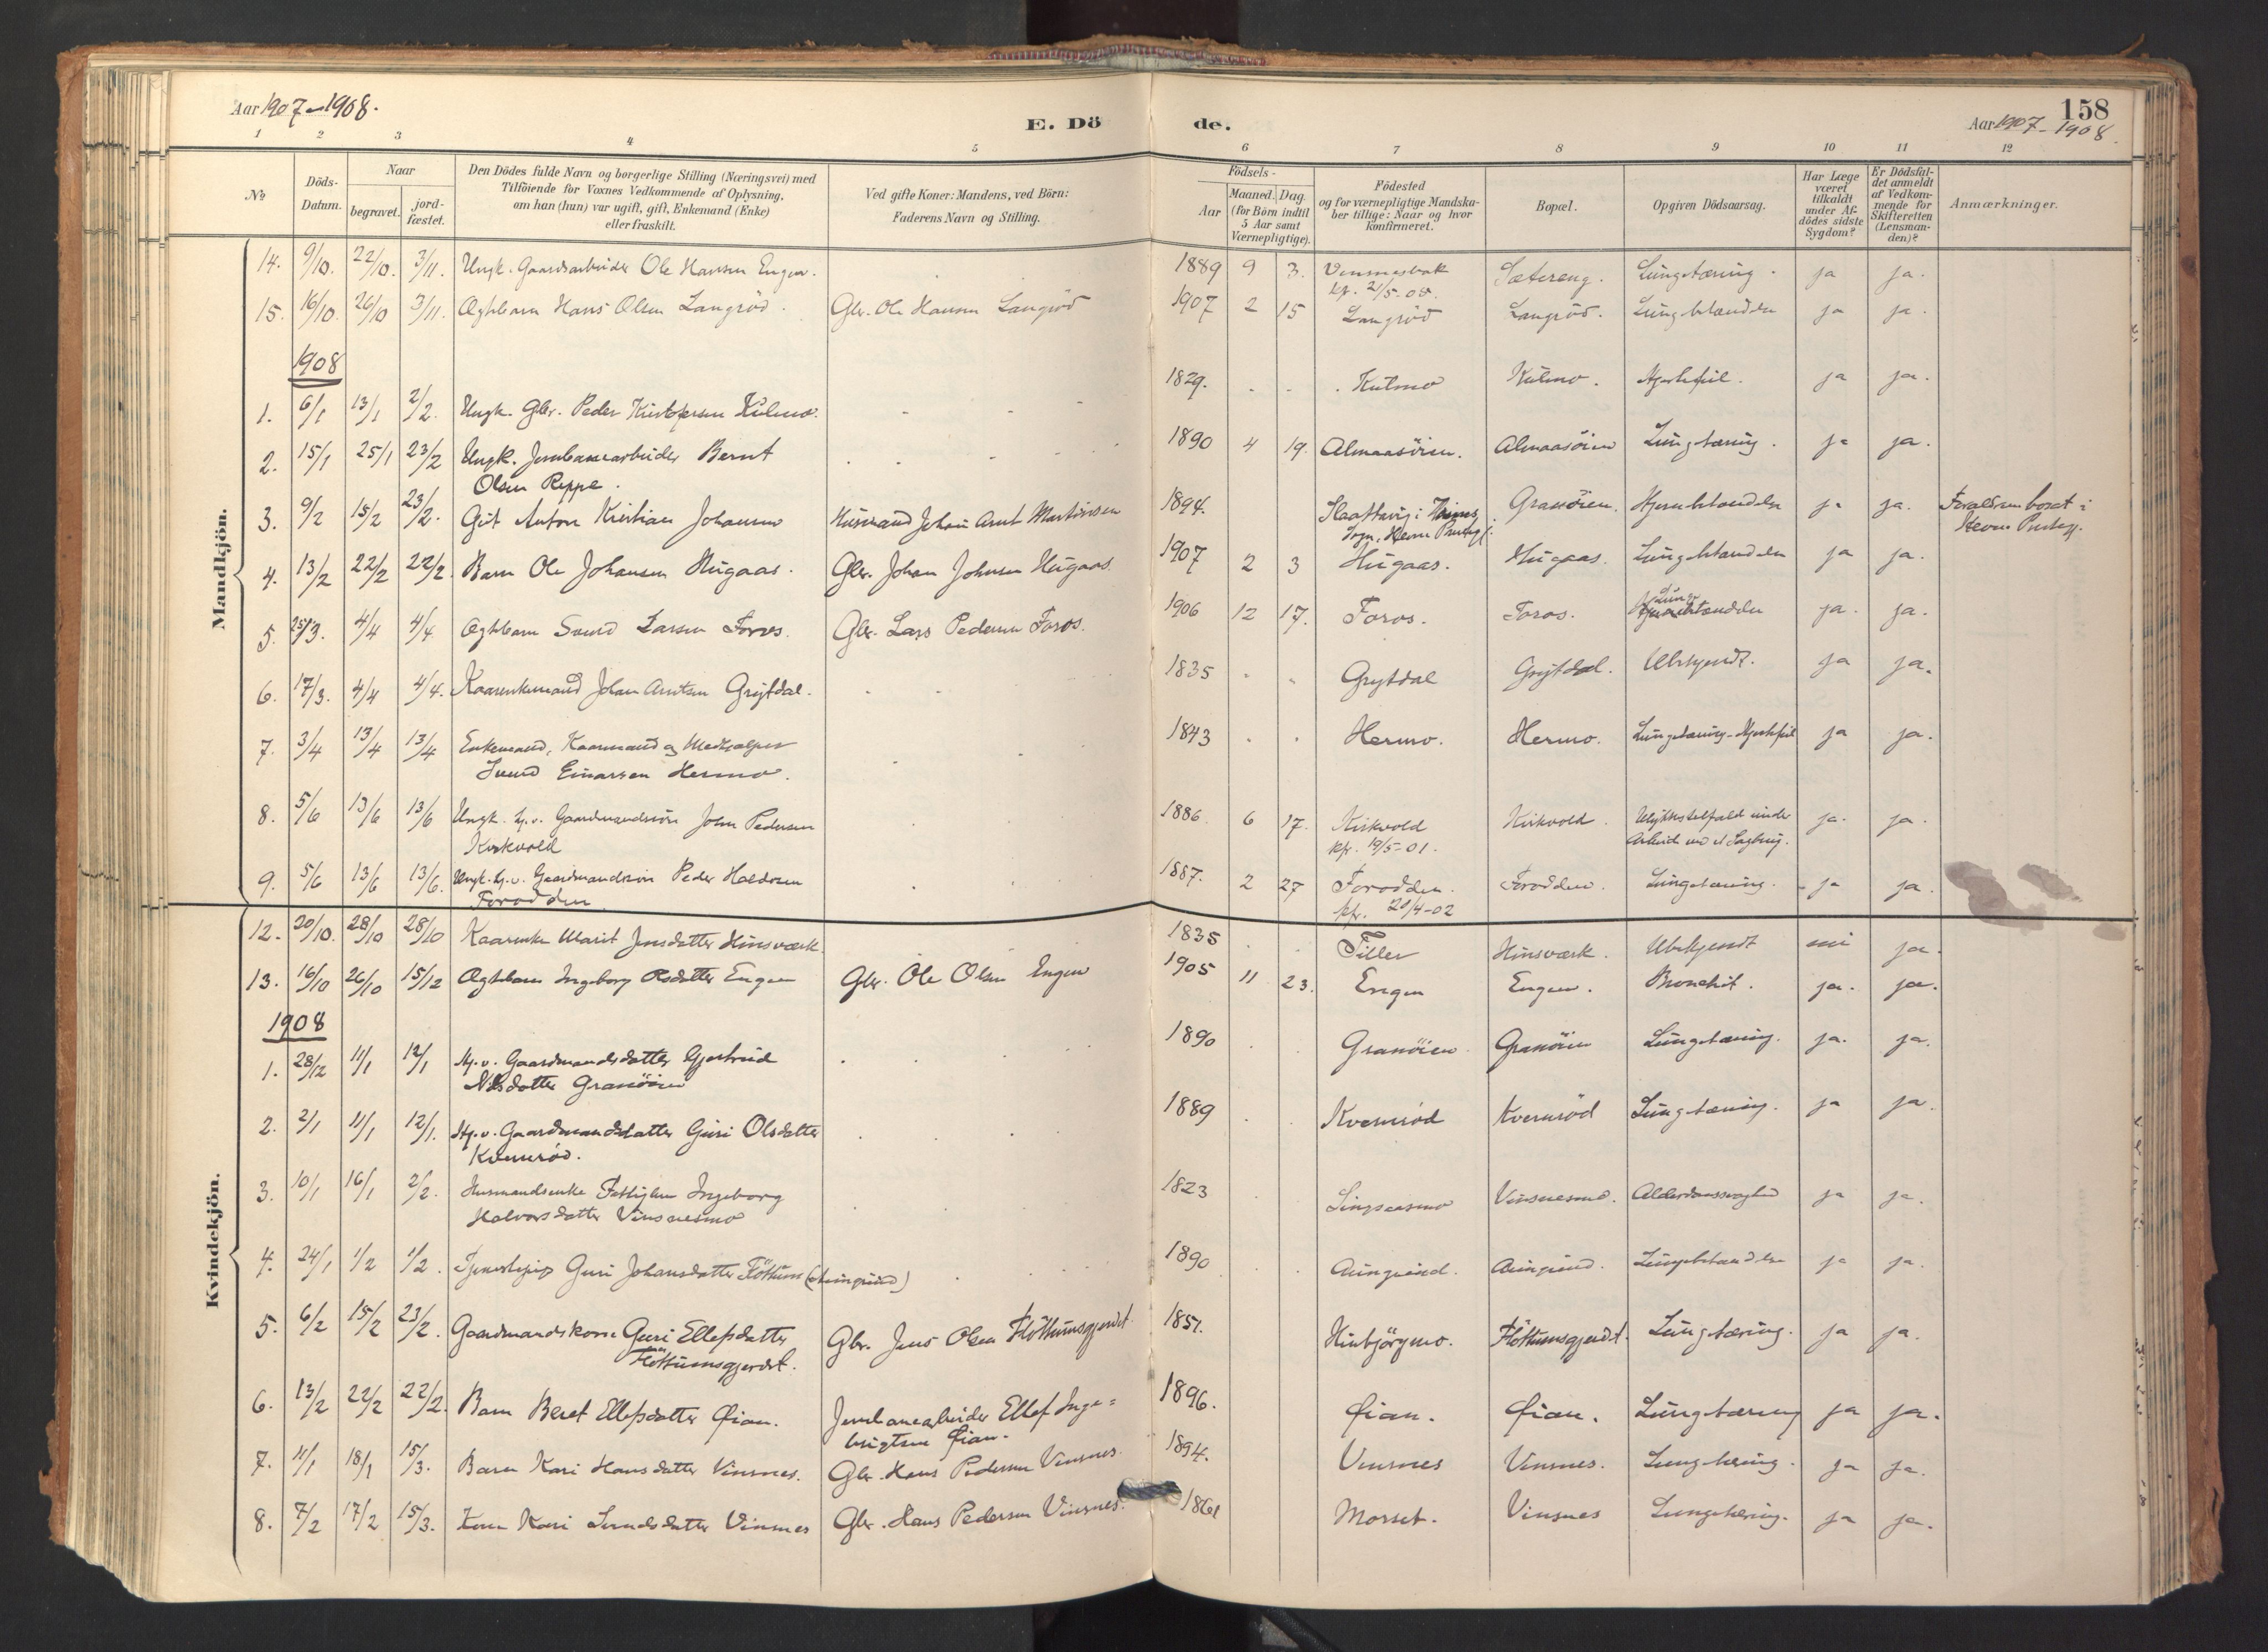 Aar 1907-1908.
E. Döde.
158
Aar 1907-1908.
1 2 3 4 5 6 7 8 9 10 11 12
No
Döds-Datum.
Naar
begravet.
jord-fæstet.
Den Dödes fulde Navn og borgerlige Stilling (Næringsvei) med
Tilföiende for Voxnes Vedkommende af Oplysning,
om han (hun) var ugift, gift, Enkemand (Enke)
eller fraskilt.
Ved gifte Koner: Mandens, ved Börn:
Faderens Navn og Stilling.
Födsels-
Aar
Maaned. Dag.
(for Börn indtil
5 Aar samt
Værnepligtige).
Födested
og for værnepligtige Mandska-
ber tillige: Naar og hvor
konfirmeret.
Bopæl.
Opgiven Dödsaarsag.
Har Læge
været
tilkaldt
under Af-
dödes sidste
Sygdom?
Er Dödsfal-
det anmeldt
af Vedkom-
mende for
Skifteretten
(Lensman-
den)?
Anmærkninger.
Mandkjön.
14. 9/10. 22/10. 3/11. Ungk. Gaardsarbeider Ole Hansen Engen. 1889 9 3. Vinsnesbak Sætereng. Lungetæring. ja ja.
kfr. 21/5-05.
15. 16/10. 26/10 3/11. Ægtebarn Hans Olsen Langröd. Gbr. Ole Hansen Langröd 1907 2 15 Langröd Langröd. Lungebetændelse ja ja.
1908
1. 6/1 13/1 2/2. Ungk. Gbr. Peder Kristofersen Kulmo. 1829. Kulmo Kulmo. Hjertefeil. ja ja.
2. 15/1 25/1 23/2 Ungk. Jernbanearbeider Bernt 1890 4 19. Almaasöien. Almaasöien Lungetæring. ja ja.
Olsen Reppe.
3. 9/2 15/2 23/2. Gut Anton Kristian Johansen Husmand Johan Arnt Martinsen 1894. Slaattavig i Hevne Granöien. Hjernebetændelse ja ja. Forældrene bosat i
Sogn, Hevne Prestegj. Hevne Prestegj.
4. 13/2 22/2 22/2. Barn Ole Johansen Hugaas. Gbr. Johan Johnsen Hugaas. 1907 2 3 Hugaas. Hugaas. Lungebetændelse ja ja.
5. 25/3. 4/4 4/4 Ægtebarn Svend Larsen Foros. Gbr. Lars Pedersen Foros. 1906 12 17. Foros. Foros. Lungebetændelse ja. ja.
6. 17/3. 4/4 4/4. Kaarenkemand Johan Arntsen Grytdal. 1835 Grytdal Grytdal. Ubekjendt. ja ja.
7. 3/4 13/4 13/4 Enkemand, Kaarmand og Medhjelper 1843 Hermo. Hermo. Lungetæring-Hjertefeil ja ja.
Svend Einarsen Hermo.
8. 5/6 13/6 13/6 Ungk. Hj.v. Gaardmandssön John Pedersen 1886. 6 17. Kirkvold Kirkvold. Ulykkestilfæld under ja. ja.
Kirkvold kfr. 19/5-01. Arbeid ved et Sagbrug.
9. 5/6 13/6 13/6. Ungk. Hj.v. Gaardmandssön Peder Haldosen 1887. 2 27 Forodden. Forodden. Lungetæring. ja ja.
Forodden kfr. 20/4-02
Kvindekjön.
12. 20/10. 28/10 28/10 Kaarenke Marit Jensdatter Hinsværk 1835 Tiller Hinsværk. Ubekjendt nei ja.
13. 16/10 26/10 15/12 Ægtebarn Ingeborg Olsdatter Engen Gbr. Ole Olsen Engen 1905 11 23. Engen Engen. Bronchit. ja. ja.
1908
1. 28/12 11/1 12/1 Hj.v. Gaardmandsdatter Gjertrud 1890 Granöien. Granöien Lungetæring. ja. ja.
Nilsdatter Granöien
2. 2/1 11/1 12/1. Hj.v. Gaardmandsdatter Guri Olsdatter 1889 Kvernröd Kvernröd Lungetæring. ja ja.
Kvernröd.
3. 10/1 16/1 2/2. Husmandsenke Fattiglem Ingeborg 1823 Singsaasmo Vinsnesmo. Alderdomssvaghed ja ja.
Halvorsdatter Vinsnesmo
4. 24/1 1/2 1/2. Tjenestepige Guri Johansdatter Flöttum (Aungrind) 1890 Aungrind. Aungrind. Lungebetændelse ja ja.
5. 6/2 15/2 23/2. Gaardmandskone Guri Ellefsdatter Gbr. Jens Olsen Flöttumsgjerdet 1851. Hinbjörgmo. Flöttumsgjerdet. Lungetæring. ja ja.
Flöttumsgjerdet.
6. 13/2 22/2 22/2. Barn Beret Ellefsdatter Øian. Jernbanearbeider Ellef Inge- 1896. Øian. Øian. Lungetæring ja ja.
brigtsen Øian.
7. 11/1 18/1 15/3. Barn Kari Hansdatter Vinsnes. Gbr. Hans Pedersen Vinsnes. 1894. Vinsnes Vinsnes. Lungetæring. ja ja.
8. 7/2 17/2 15/3. Kone Kari Svendsdatter Vinsnes Gbr. Hans Pedersen Vinsnes. 1861 Morset. Vinsnes Lungetæring. ja ja.